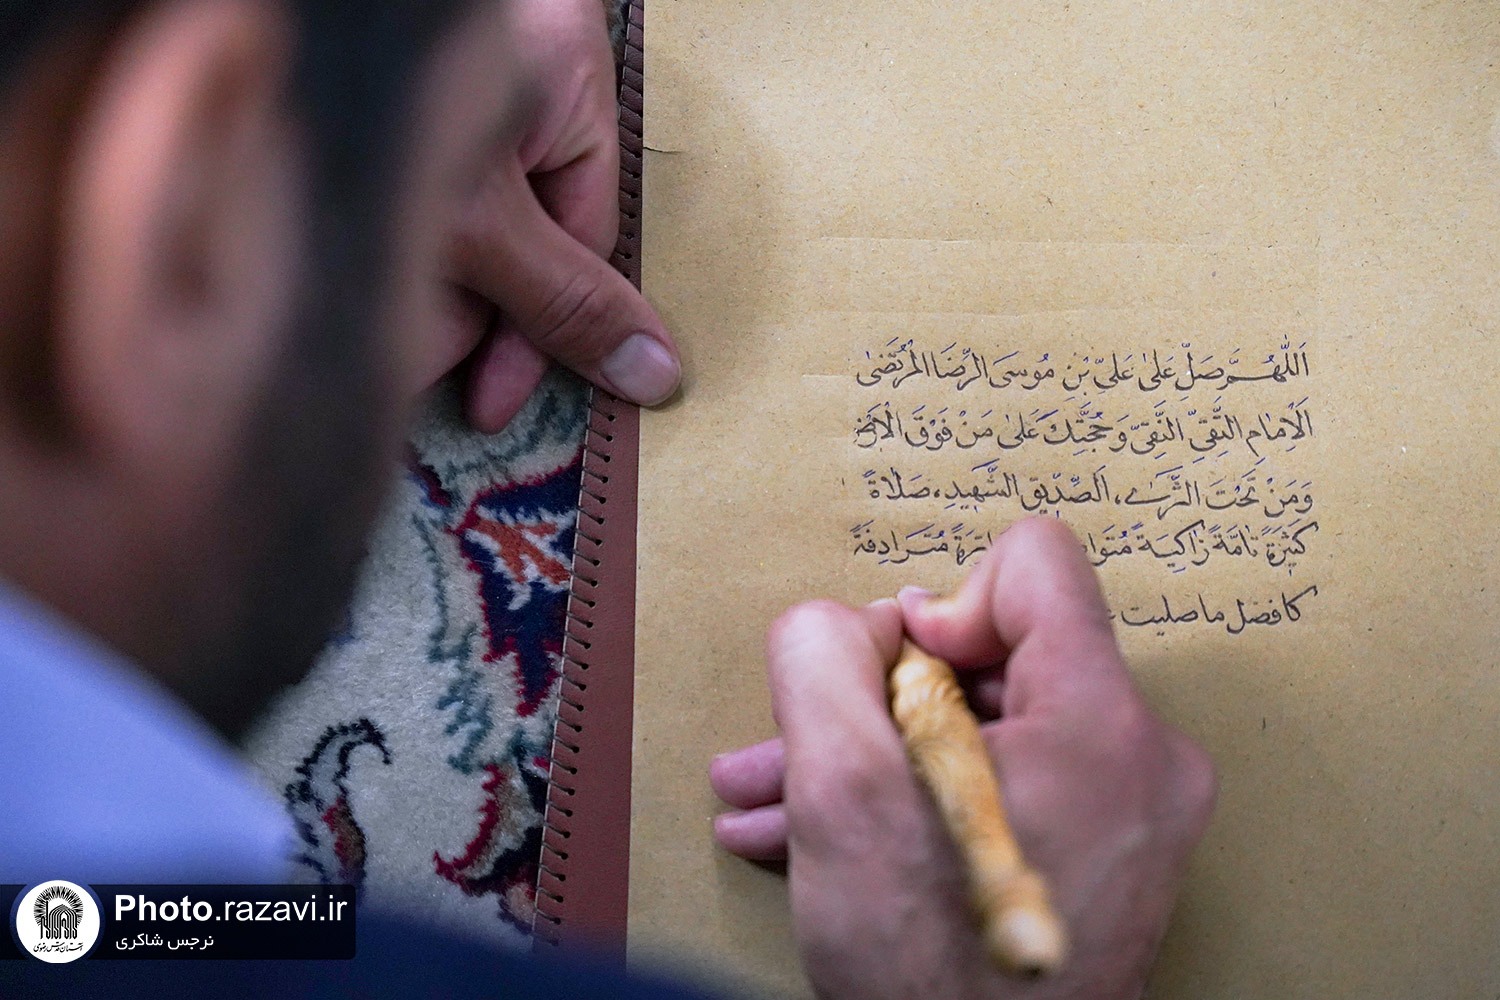 اَللّٰهُمَّ صَلِّ عَلىٰ عَلىِّ بْنِ مُوسَى الرِّضَا الْمُرْتَضىٰ
اَلْاِمٰامِ التَّقِىِّ النَّقِىِّ وَحُجَّتِكَ عَلىٰ مَنْ فَوْقَ الْاَرْضِ
وَمَنْ تَحْتَ الثَّرىٰ، اَلصِّدّٖيقِ الشَّهٖيدِ، صَلٰاةً
كَثٖيرَةً تٰامَّةً زٰاكِيَةً مُتَرَادِفَةً
كافضل ما صليت
Photo.razavi.ir
نرجس شاکری
آستان قدس رضوی